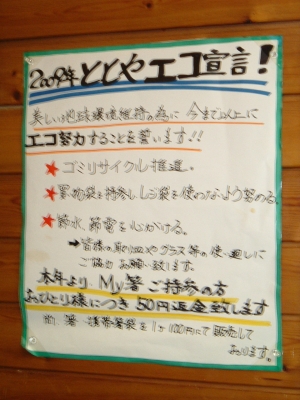 2009年 ととやエコ宣言!
美しい地球環境維持の為に 今まで以上に
エコ努力することを誓います!!
★ ゴミリサイクル推進。
★ 買物袋を持参しレジ袋を使わないよう努める。
★ 節水、節電を心がける。
➡皆様の取り皿やグラス等の使い廻しに
ご協力お願い致します。
本年より My箸 ご持参の方
おひとり様につき 50円返金致します
箸・携帯箸袋を1ヶ100円にて販売して
おります。